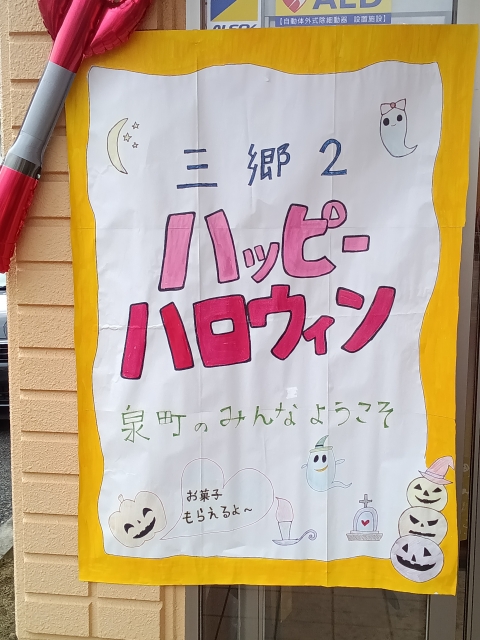 ALSOK
AED
【自動体外式除細動器 設置施設】
三郷2
ハッピー
ハロウィン
泉町のみんなようこそ
お菓子
もらえるよ～